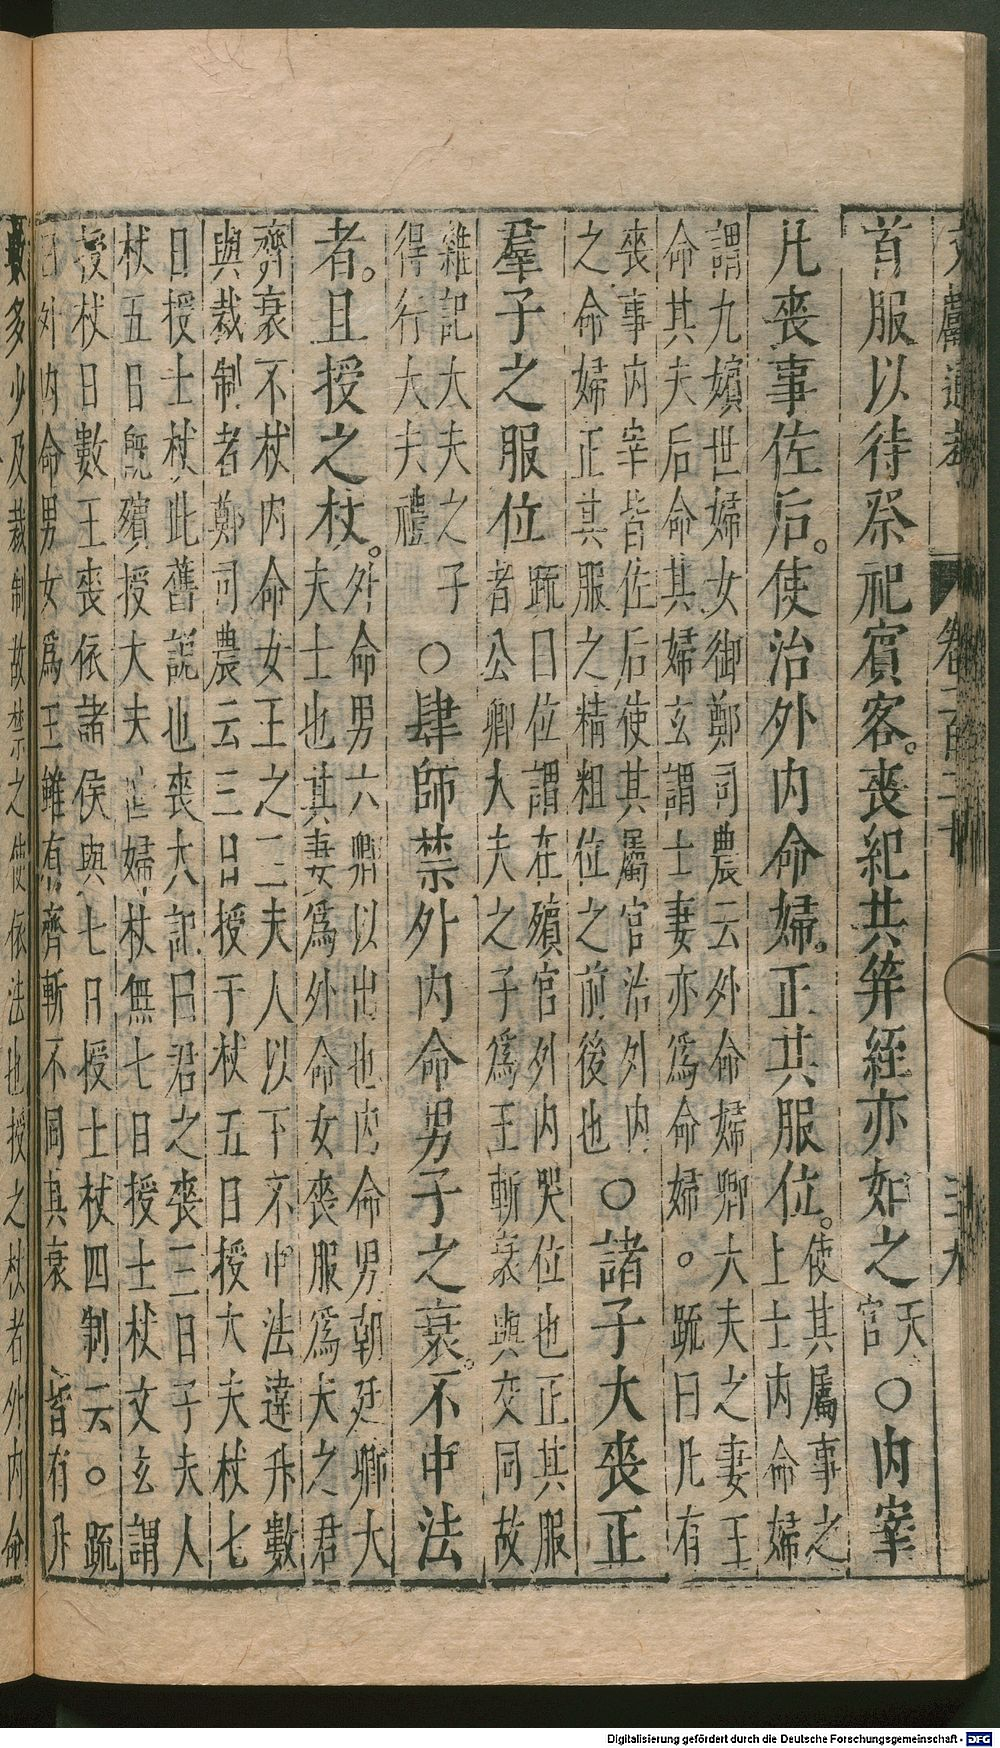 文獻通考 卷一百二十
首服以待祭祀賓客。喪紀共笄絰亦如之天官○內宰
凡喪事佐后。使治外內命婦。正共服位。使其屬事之
上士內命婦
謂九嬪世婦女御鄭司農云外命婦卿大夫之妻王
命其夫后命其婦玄謂士妻亦爲命婦。疏曰凡有
喪事內宰皆佐后使其屬官治外內
之命婦正其服之精粗位之前後也○諸子大喪正
羣子之服位疏曰位謂在殯宮外內哭位也正其服
者公卿大夫之子爲王斬衰與父同故
雜記大夫之子
得行大夫禮○肆師禁外內命男子之衰。不中法
者。且授之杖。外命男六鄉以出也內命男朝廷卿大
夫士也其妻爲外命女喪服爲夫之君
齊衰不杖內命女王之三夫人以下不中法違升數
與裁制者鄭司農云三日授子杖五日授大夫杖七
日授士杖此舊說也喪大記曰君之喪三日子夫人
杖五日既殯授大夫世婦杖無七日授士杖文玄謂
授杖日數王喪依諸侯與七日授士杖四制云。疏
曰外內命男女爲王雖有齊斬不同其衰皆有升
數多少及裁制故禁之使依法也授之杖者外內命
Digitalisierung gefördert durch die Deutsche Forschungsgemeinschaft - DFG